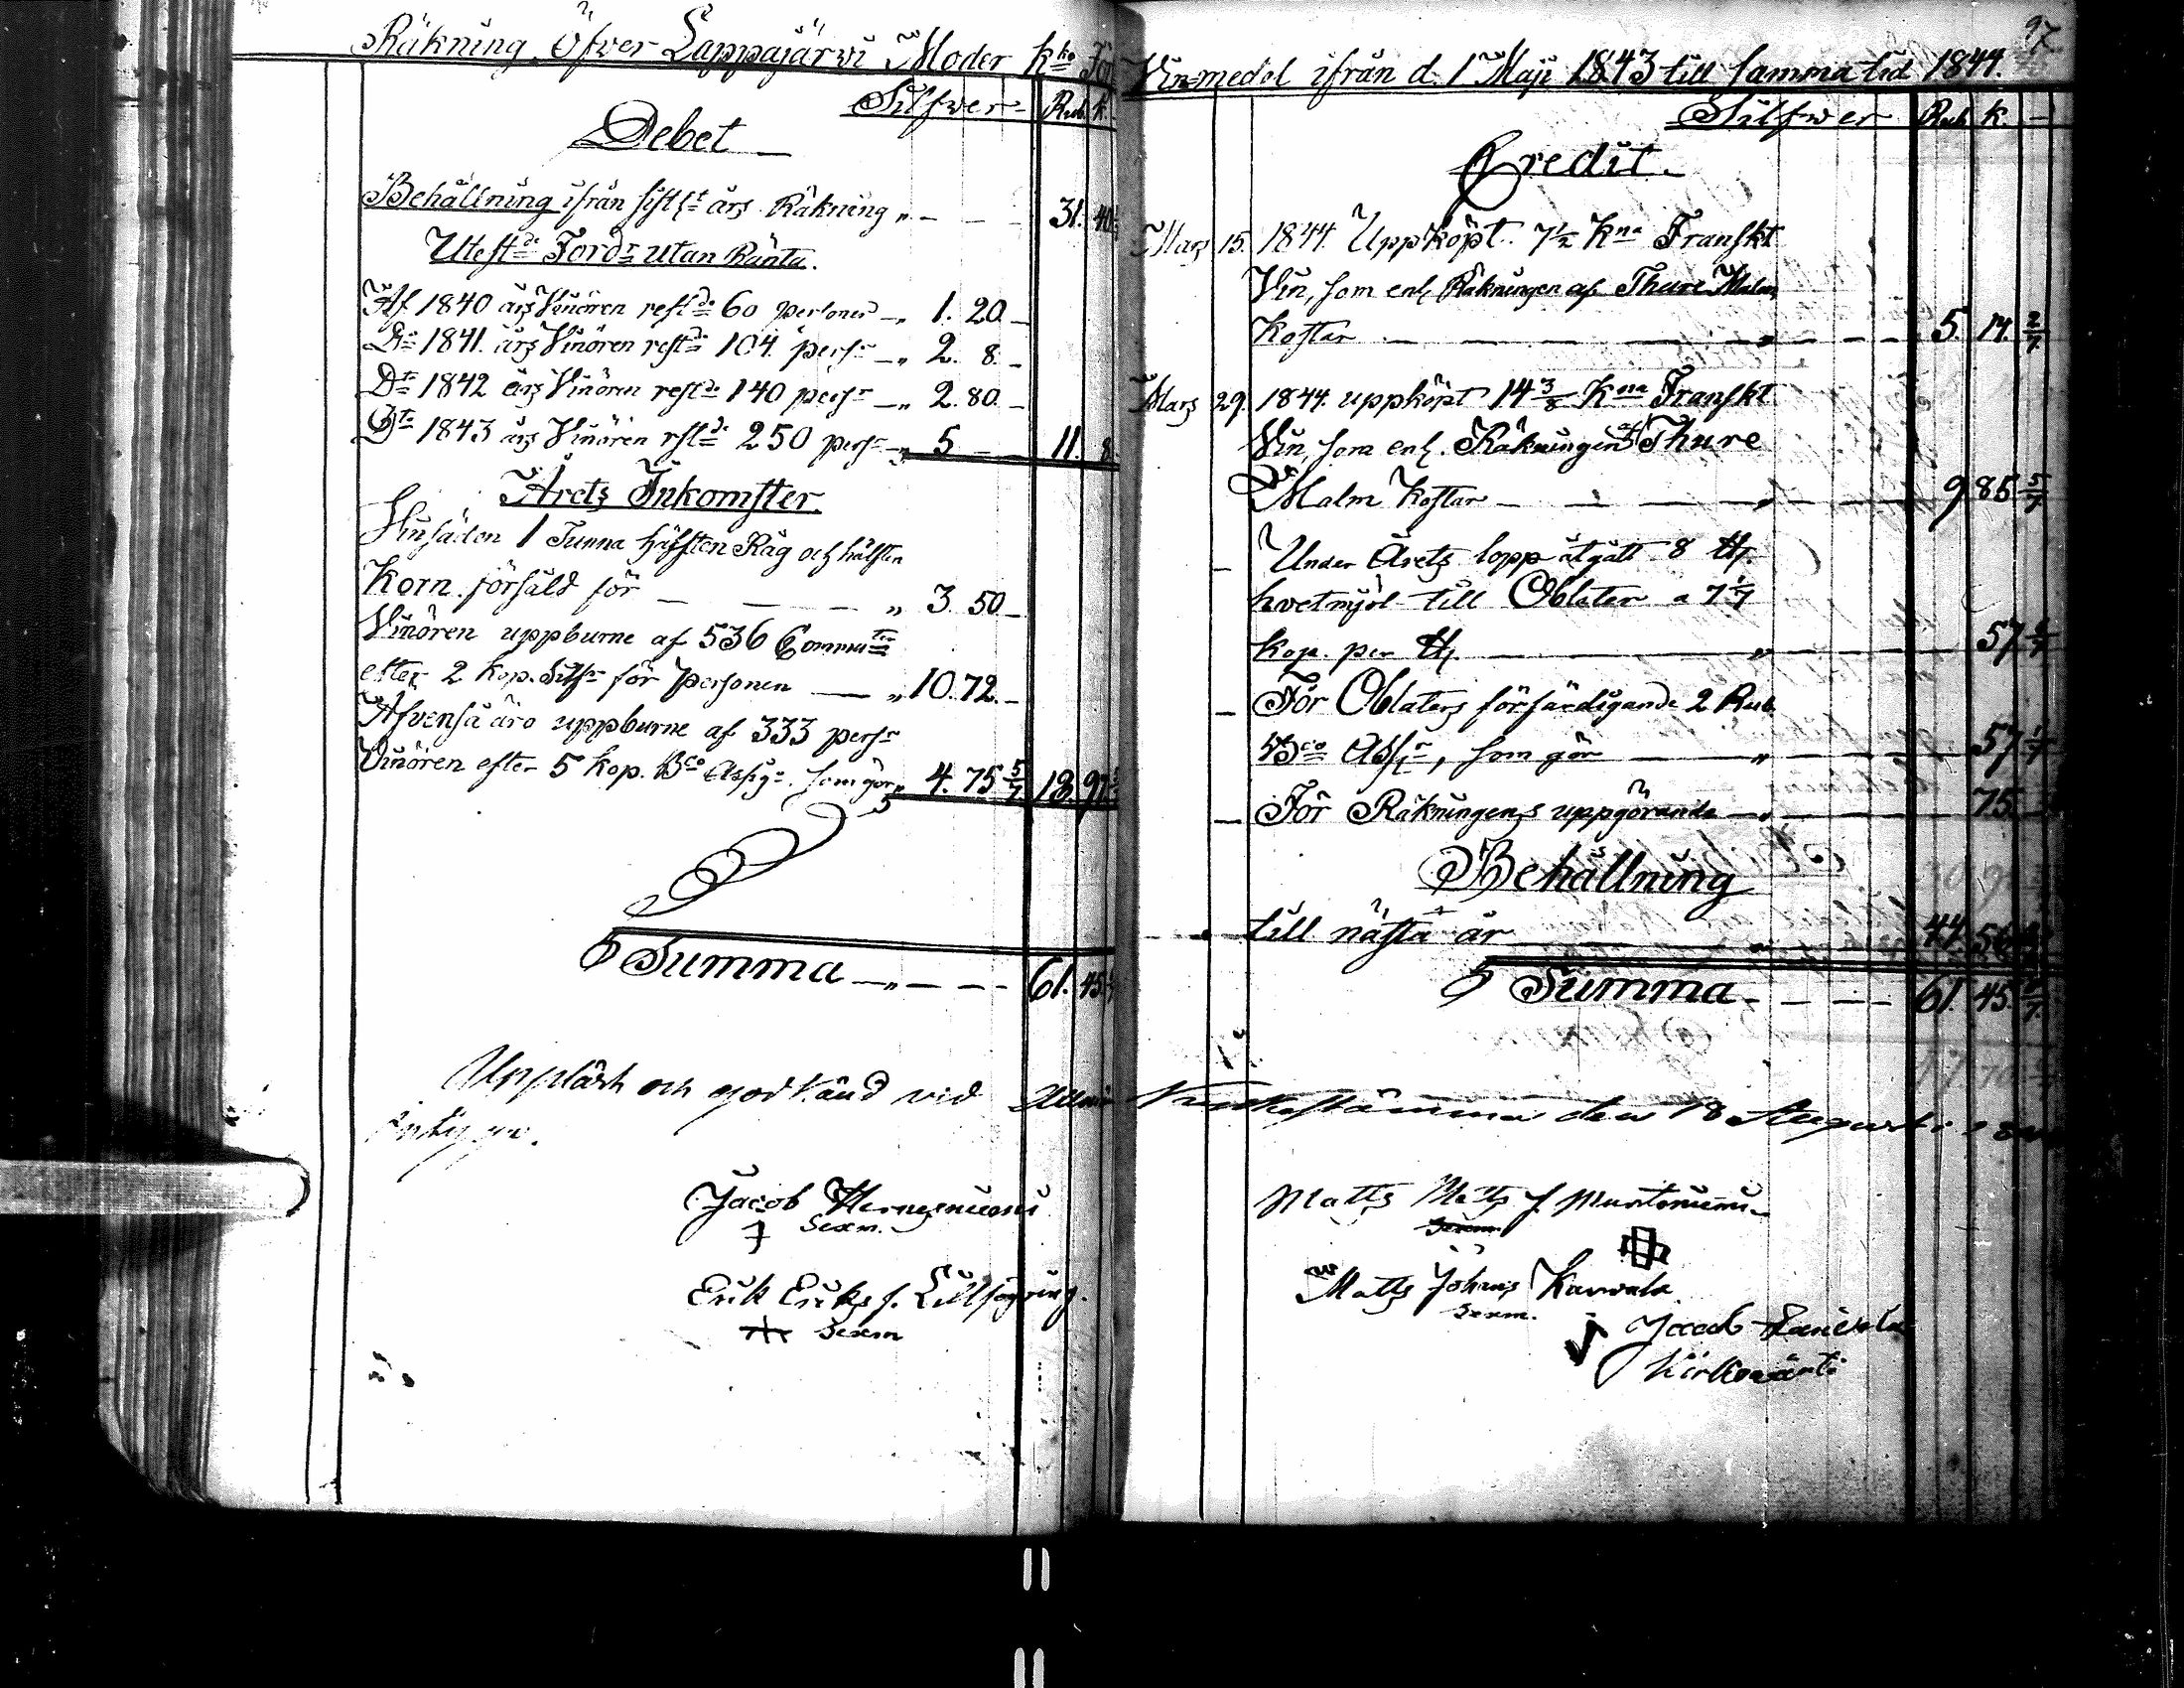 Räkning Öfver Lappajärwi Moder Kko För
Silfwer Rub. k.
Debet
Behållning ifrån sistl:t års Räkning „ 31. 40
Utest:de Ford:r utan Ränta.
Af 1840 års Vinören rest:de 60 personer „ 1. 20.
D:o 1841. års Vinören rest:de 104. pers:r „ 2. 8.
D:to 1842 års Vinören rest:de 140 pers:r „ 2. 80.
D:to 1843 års Vinören rst:de 250 pers:r „ 5 11. 8
Årets Inkomster.
Vinsäden 1 Tunna hälften Råg och hälften
Korn försåld för „ 3. 50
Vinören uppburne af 536 Commu
efter 2 kop. Silfr för Personen „ 10. 72.
Äfvenså äro uppburne af 333 pers:r
Vinören efter 5 kop. Bco Assig:r som gör „ 4. 75 5/7 18. 97
Summa „ 61. 45
Uppläst och godkänd vid
Jacob
Sexm.
Erik Eriks s.
Sexm
97
Vin-medel ifrån d. 1 Maji 1843 till samma tid 1844.
Silfwer Rub. k.
Credit.
Mars 15. 1844. Uppköpt 7½ K:na Franskt
Vin, som enl. Räkningen af Thure Malm
Kostar „ 5. 14. 2/7
Mars 29. 1844. uppköpt 14 3/8 K:na Franskt
Vin, som enl. Räkningen af Thure
Malm Kostar „ 9 85 5/7
Under Årets lopp åtgått 8 ℔.
hvetmjöl till Oblater a 7 1/7
kop. per ℔. „ 57
För Oblaters förfärdigande 2 Rub.
Bco Ass:r, som gör „ 57 1/7
För Räkningens uppgörande „ 75
Behållning
till nästa år „ 44 56
Summa 61. 45.
Kyrkostämma den 18 Augusti
Matts Matts s.
Sexm.
Matts Johans Karvala
Sexm.
Jacob